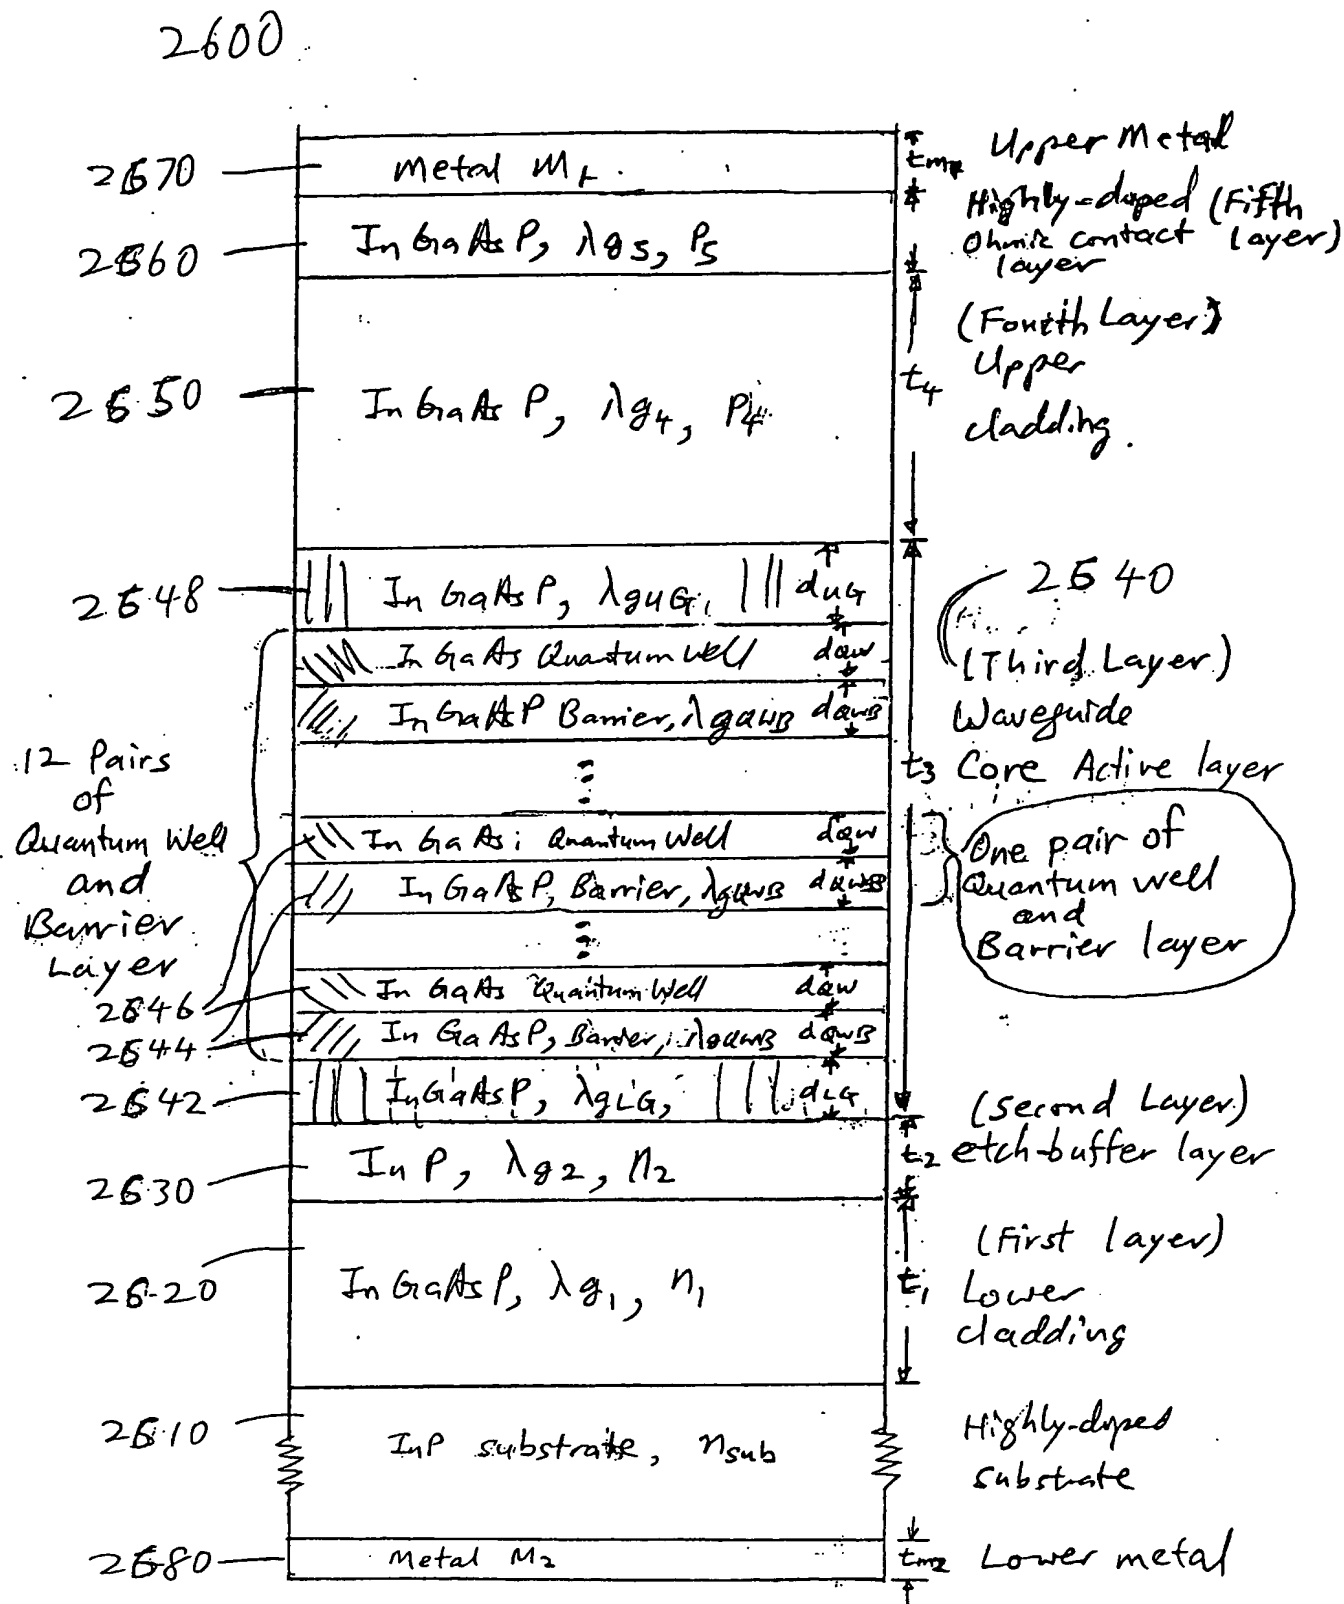 2600
2670
Metal M1
tm1
Upper Metal
2660
InGaAsP, λg5, P5
Highly-doped (Fifth
Ohmic contact layer)
layer
2650
InGaAsP, λg4, P4
t4
(Fourth Layer)
Upper
cladding.
2648
InGaAsP, λguG,
duG
2640
InGaAs Quantum well
dQW
(Third Layer)
InGaAsP Barrier, λgQWB
dQWB
Waveguide
t3
Core Active layer
12 Pairs
of
Quantum Well
and
Barrier
Layer
InGaAs; Quantum Well
dQW
InGaAsP, Barrier, λgQWB
dQWB
One pair of
Quantum well
and
Barrier layer
2646
InGaAs Quantum Well
dQW
2644
InGaAsP, Barrier, λgQWB
dQWB
2642
InGaAsP, λgLG,
dLG
(Second Layer)
2630
InP, λg2, n2
t2
etch-buffer layer
2620
InGaAsP, λg1, n1
t1
(First layer)
Lower
cladding
2610
InP substrate, nsub
Highly-doped
substrate
2680
Metal M2
tm2
Lower metal